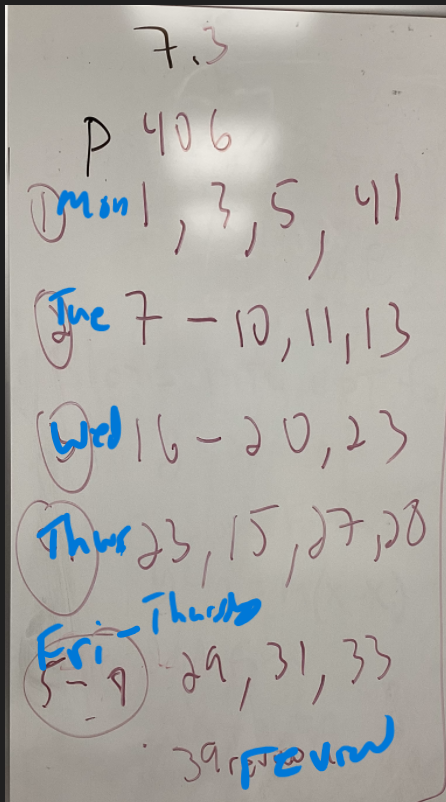 7.3
P 406
① Mon 1, 3, 5, 41
Tue 7 - 10, 11, 13
Wed 16 - 20, 23
Thurs 23, 15, 27, 28
Fri - Thursday
5 - 9 29, 31, 33
39 review